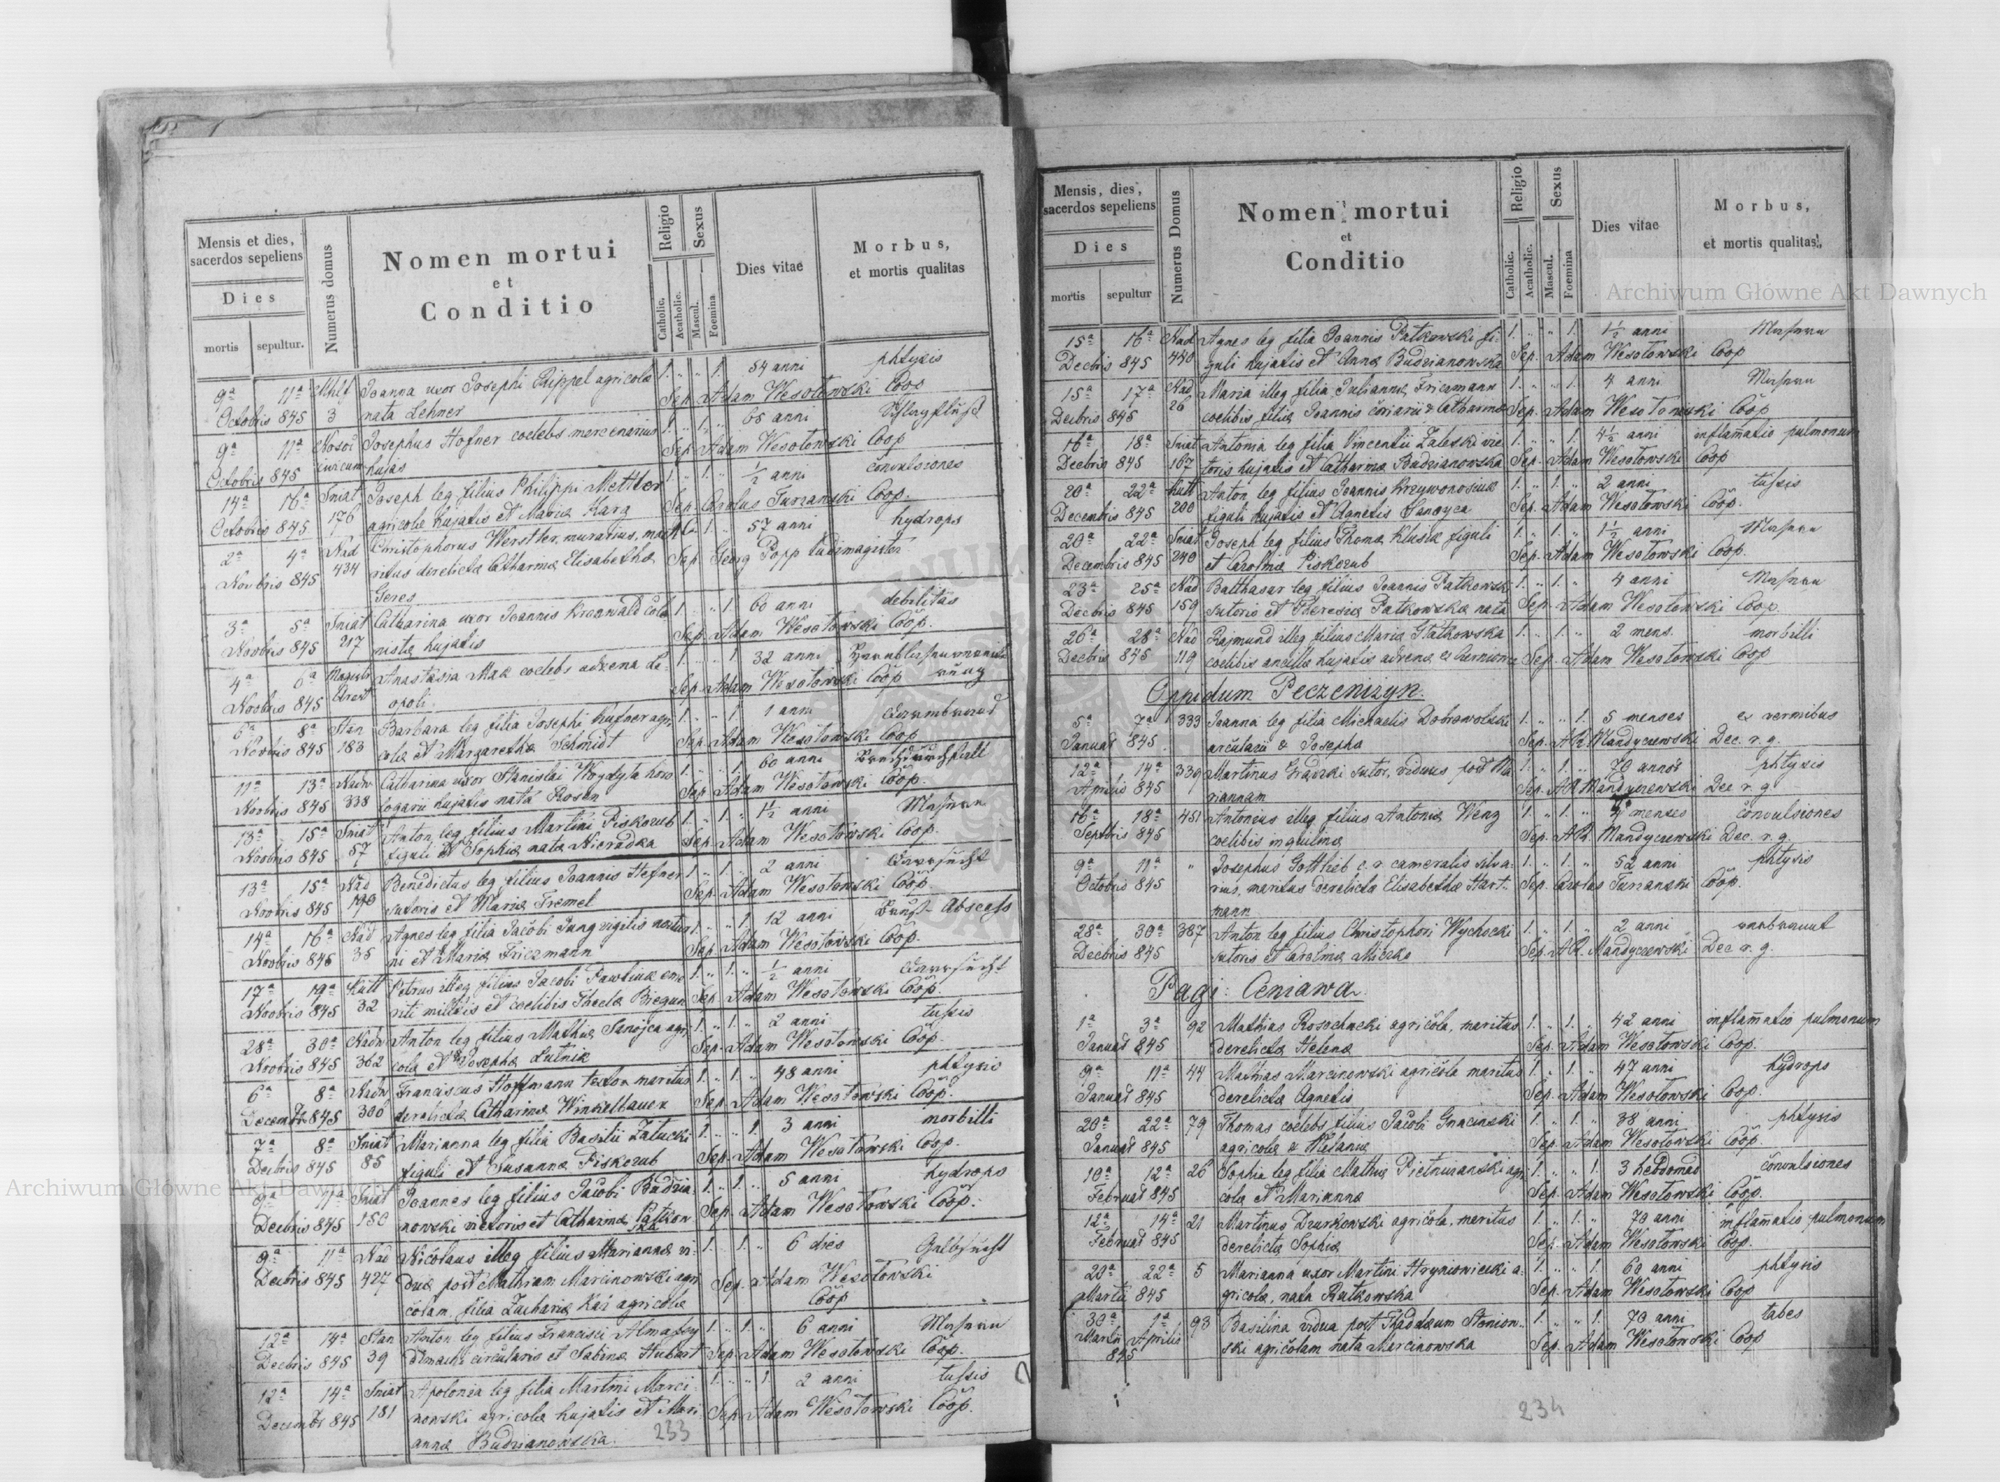 Mensis et dies,
sacerdos sepeliens
Dies
mortis sepultur.
Numerus domus
Nomen mortui
et
Conditio
Religio
Catholic.
Acatholic.
Sexus
Mascul.
Foemina
Dies vitae
Morbus,
et mortis qualitas
9ª 11ª Joanna uxor Josephi Rippel agricolæ 1. „ „ 1. 54 anni phtysis
Octobris 845 3 nata Lehner Sep. Adam Wesołowski Coop
9ª 11ª Kosoč Josephus Hofner coelebs mercenarius 1. 1. 65 anni Schlagfluss
Octobris 845 hujas Sep. Adam Wesołowski Coop
14ª 16ª Sniat Joseph leg filius Philippi Mettler 1. 1. ½ anni convulsiones
Octobris 845 176 agricolæ hujatis et Mariæ Karg Sep. Carolus Turzanski Coop.
2ª 4ª Nad Christophorus Werstler, murarius, 57 anni hydrops
Novbris 845 434 ritus derelictæ Catharinæ Elisabethæ Sep. Georg Popp Ludimagister
Seres
3ª 5ª Sniat Catharina uxor Joannis Kronwald colo 1. 1. 60 anni debilitas
Novbris 845 217 nistæ hujatis Sep. Adam Wesołowski Coop.
4ª 6ª Anastasia Mak coelebs advena Le 1. 1. 32 anni
Novbris 845 opoli. Sep. Adam Wesołowski Coop
6ª 8ª Stan Barbara leg filia Josephi Hufner agri 1. 1. 1 anni
Novbris 845 183 colæ et Margarethæ Schmidt Sep. Adam Wesołowski Coop
11ª 13ª Nadw Catharina uxor Stanislai Woydyła 1. 1. 60 anni
Novbris 845 338 hujatis nata Rosen Sep. Adam Wesołowski Coop.
13ª 15ª Sniat Anton leg filius Martini Piskozub 1. 1. 1½ anni Masern
Novbris 845 57 figuli et Sophiæ nata Nieradka Sep. Adam Wesołowski Coop.
13ª 15ª Nad Benedictus leg filius Joannis Hefner 1. 1. 2 anni
Novbris 845 190 sutoris et Mariæ Tremel Sep. Adam Wesołowski Coop
14ª 16ª Nad Agnes leg filia Jacobi Jung vigilis noctur 1. 1. 12 anni Brust-Abscess
Novbris 845 35 ni et Mariæ Friczmann Sep. Adam Wesołowski Coop.
17ª 19ª Kutt Petrus illeg filius Jacobi Pawliuk eme 1. 1. ½ anni
Novbris 845 32 riti militis et coelibis Theclæ Biegun Sep. Adam Wesołowski Coop.
28ª 30ª Nadw Anton leg filius Mathiæ Sanojca agri 1. 1. 2 anni tussis
Novbris 845 362 colæ et Josephæ Lutnik Sep. Adam Wesołowski Coop.
6ª 8ª Nadw Franciscus Hoffmann textor maritus 1. 1. 48 anni phtysis
Decemb 845 300 derelictæ Catharinæ Winkelbauer Sep. Adam Wesołowski Coop.
7ª 8ª Sniat Marianna leg filia Basilii Załucki 1. 1. 3 anni morbilli
Decbris 845 85 figuli et Susannæ Piskozub Sep. Adam Wesołowski Coop.
9ª 11ª Sniat Joannes leg filius Jacobi Budzia 1. 1. 5 anni hydrops
Decbris 845 150 nowski et Catharinæ Patkow Sep. Adam Wesołowski Coop.
9ª 11ª Nad Nicolaus illeg filius Mariannæ vi 1. 1. 6 dies Gelbsucht
Decbris 845 427 duæ post Mathiam Marcinowski agri Sep. Adam Wesołowski
colam, filia Zachariæ agricolæ Coop
12ª 14ª Stan Anton leg filius Francisci 1. 1. 6 anni Masern
Decbris 845 39 circularis et Sabinæ Hubert Sep. Adam Wesołowski Coop.
12ª 14ª Sniat Apolonia leg filia Martini Marci 1. 1. 2 anni tussis
Decemb 845 181 nowski agricolæ hujatis et Mari Sep. Adam Wesołowski Coop.
annæ Budzianowska.
233
Mensis, dies,
sacerdos sepeliens
Dies
mortis sepultur
Numerus Domus
Nomen mortui
et
Conditio
Religio
Catholic.
Acatholic.
Sexus
Mascul.
Foemina
Dies vitae
Morbus,
et mortis qualitas,
15ª 16ª Nad Agnes leg filia Joannis Patkowski fi 1. „ „ 1. 1½ anni Masern
Decbris 845 440 guli hujatis et Annæ Budzianowska Sep. Adam Wesołowski Coop
15ª 17ª Nad Maria illeg filia Juliannæ Friczmann 1. 1. 4 anni Masern
Decbris 845 26 coelibis filiæ Joannis & Catharinæ Sep. Adam Wesołowski Coop
16ª 18ª Sniat Antonia leg filia Vincentii Zaleski vie 1. 1. 4½ anni inflamatio pulmonum
Decbris 845 167 toris hujatis et Catharinæ Budzianowska Sep. Adam Wesołowski Coop
20ª 22ª Kutt Anton leg filius Joannis Krzywonosiuk 1. 1. 2 anni tussis
Decembris 845 200 figuli hujatis et Agnetis Sanoyca Sep. Adam Wesołowski Coop.
20ª 22ª Sniat Joseph leg filius Thomæ Klusik figuli 1. 1. 1½ anni Masern
Decembris 845 240 et Carolinæ Piskozub Sep. Adam Wesołowski Coop.
23ª 25ª Nad Balthasar leg filius Joannis Patkowski 1. 1. 4 anni Masern
Decbris 845 159 sutoris et Theresiæ Patkowska nata Sep. Adam Wesołowski Coop.
26ª 28ª Nad Rajmund illeg filius Mariæ Statkowska 1. 1. 2 mens. morbilli
Decbris 845 119 coelibis ancillæ hujatis advenæ Sep. Adam Wesołowski Coop
Oppidum Peczeniżyn.
5ª 7ª 333 Joanna leg filia Michaelis Dobrowolski 1. „ „ 1. 5 menses ex vermibus
Januar 845 arcularii & Josephæ Sep. Al. Mandyczewski Dec. r. g.
12ª 14ª 339 Martinus Gradzki sutor, viduus post Ma 1. 1. 70 annos phtysis
Aprilis 845 riannam Sep. Al. Mandyczewski Dec r. g
16ª 18ª 451 Antonius illeg filius Antoniæ Weng 1. 1. menses convulsiones
Septbris 845 coelibis inquilinæ Sep. Al. Mandyczewski Dec. r. g.
9ª 11ª „ Josephus Gottlieb c. r. cameralis silva 1. 1. 52 anni phtysis
Octobris 845 rius, maritus derelictæ Elisabethæ Hart Sep. Carolus Turzanski Coop.
mann
28ª 30ª 387 Anton leg filius Christophori Wychocki 1. 1. 2 anni
Decbris 845 sutoris et Carolinæ Miczko Sep. Al. Mandyczewski Dec r. g.
Pagi: Ceniawa.
1ª 3ª 92 Mathias Rosochacki agricola, maritus 1. 1. 42 anni inflamatio pulmonum
Januar 845 derelictæ Helenæ Sep. Adam Wesołowski Coop.
9ª 11ª 44 Mathias Marcinowski agricola maritus 1. 1. 47 anni hydrops
Januar 845 derelictæ Agnetis Sep. Adam Wesołowski Coop.
20ª 22ª 79 Thomas coelebs filius Jacobi Gnacinski 1. 1. 38 anni phtysis
Januar 845 agricolæ & Melaniæ Sep. Adam Wesołowski Coop.
10ª 12ª 26 Sophia leg filia Mathiæ Pietnizanski agri 1. 1. 3 hebdomad convulsiones
Februar 845 colæ et Mariannæ Sep. Adam Wesołowski Coop.
12ª 14ª 21 Martinus Dzurkowski agricola, maritus 1. 1. 70 anni inflamatio pulmonum
Februar 845 derelictæ Sophiæ Sep. Adam Wesołowski Coop.
20ª 22ª 5 Marianna uxor Martini Hryniowiecki a 1. 1. 60 anni phtysis
Martii 845 gricolæ, nata Rutkowska Sep. Adam Wesołowski Coop
30ª 1ª 93 Basilina vidua post Thaddæum Stenion 1. 1. 70 anni tabes
Martii Aprilis ski agricolam nata Marcinowska Sep. Adam Wesołowski Coop
845
234
Archiwum Główne Akt Dawnych
Archiwum Główne Akt Dawnych